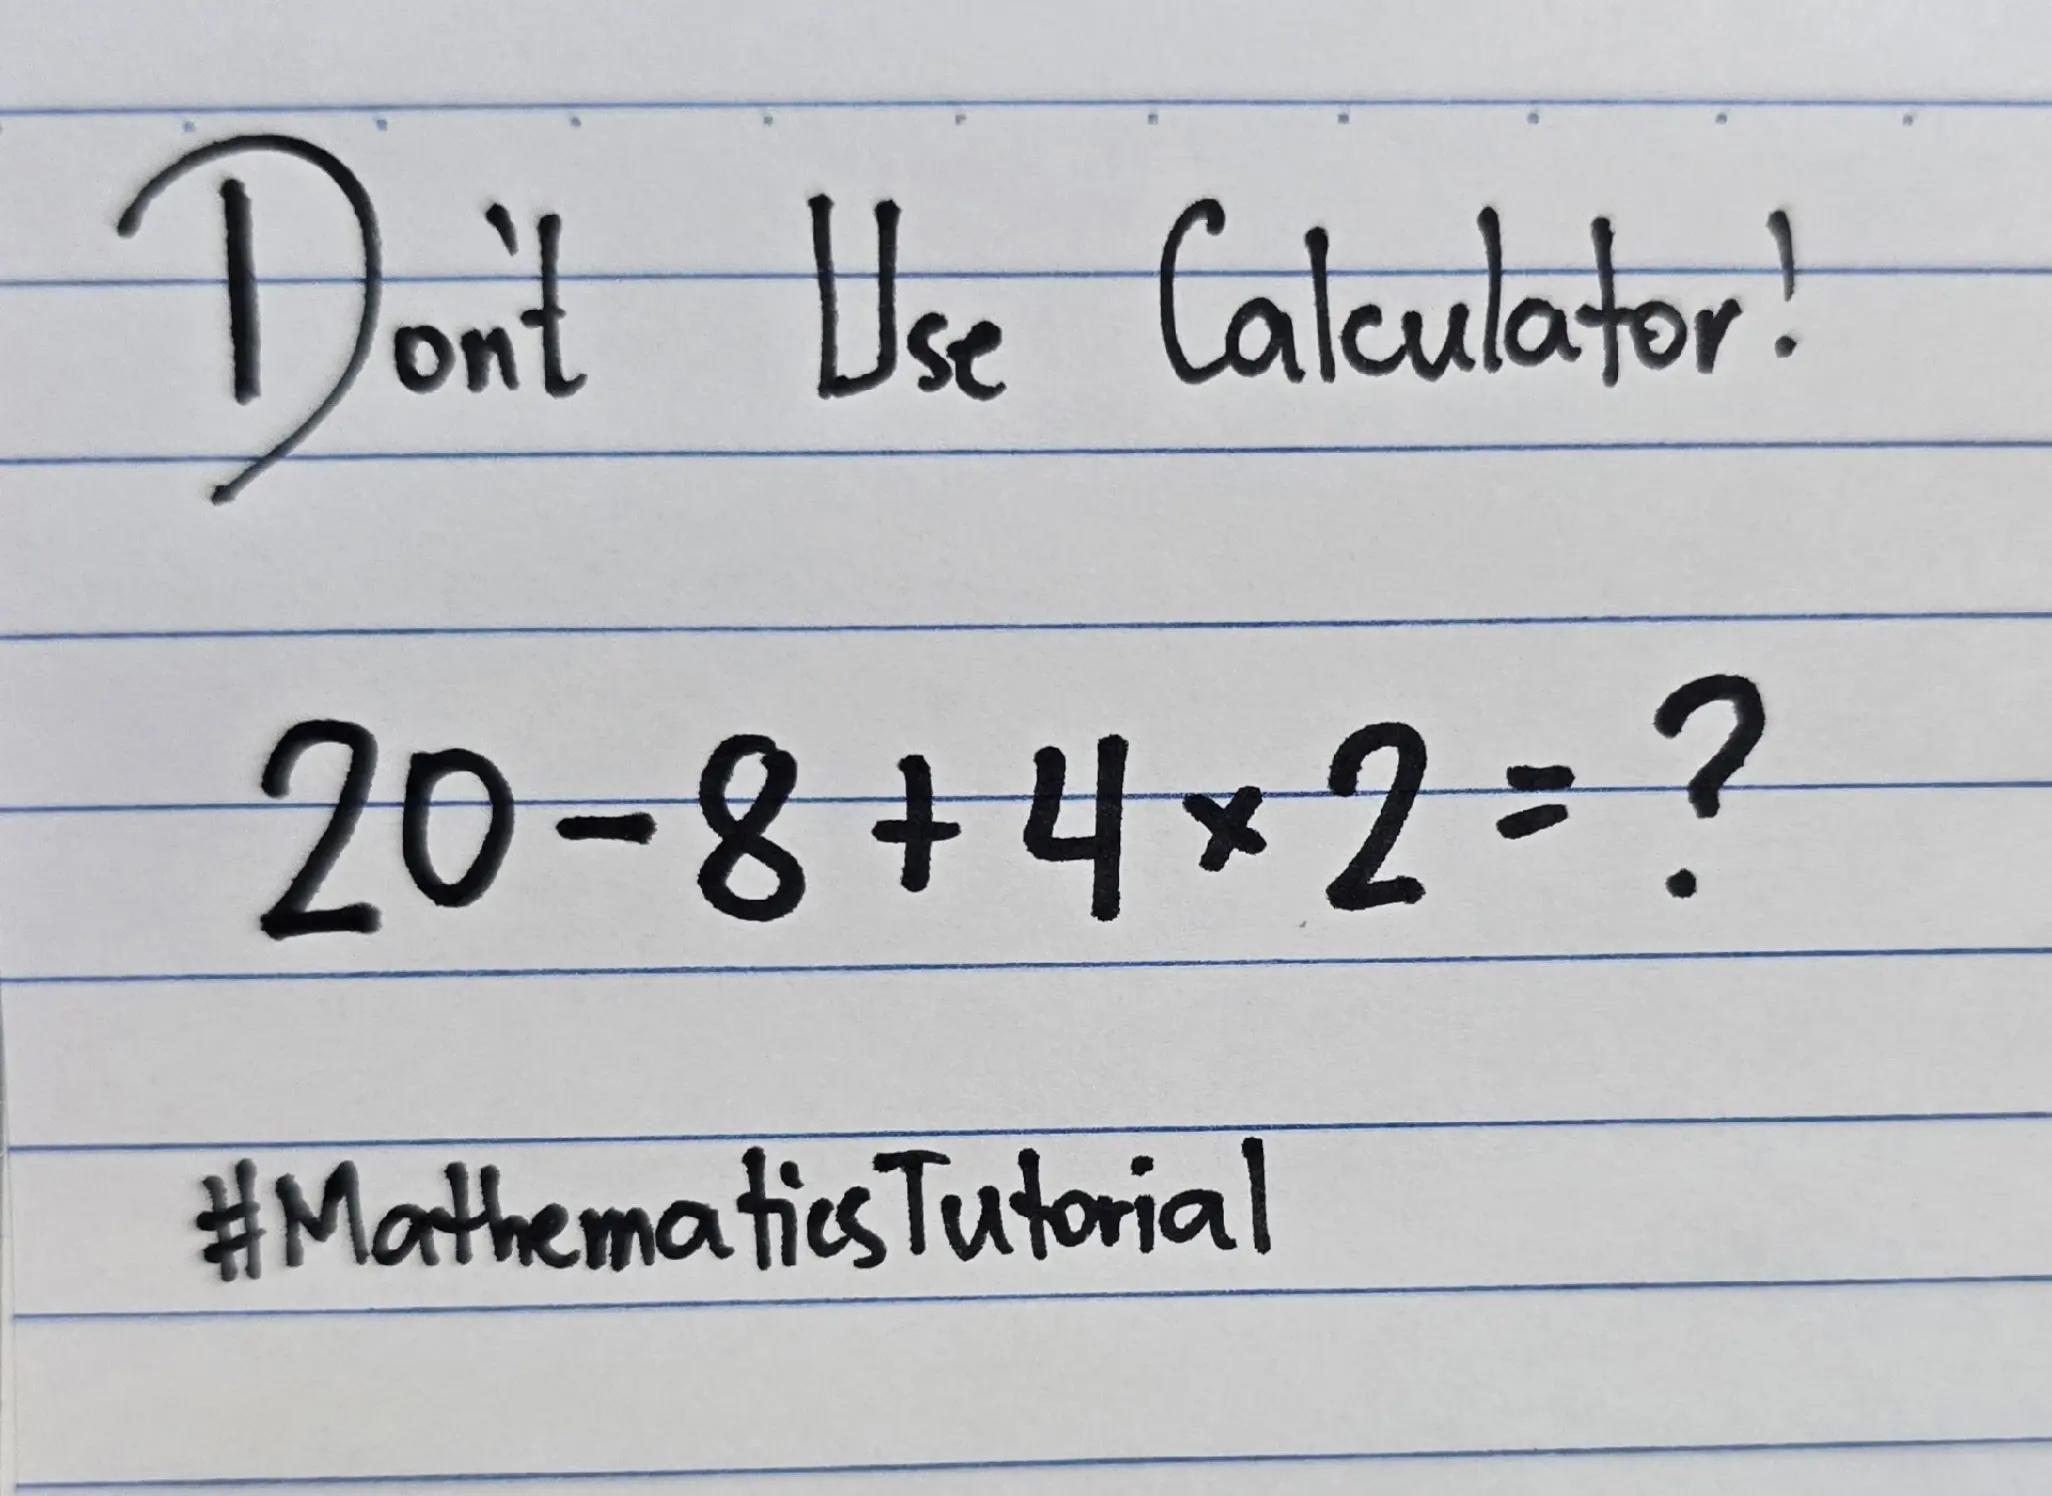 Don't Use Calculator!
20-8+4×2=?
#MathematicsTutorial